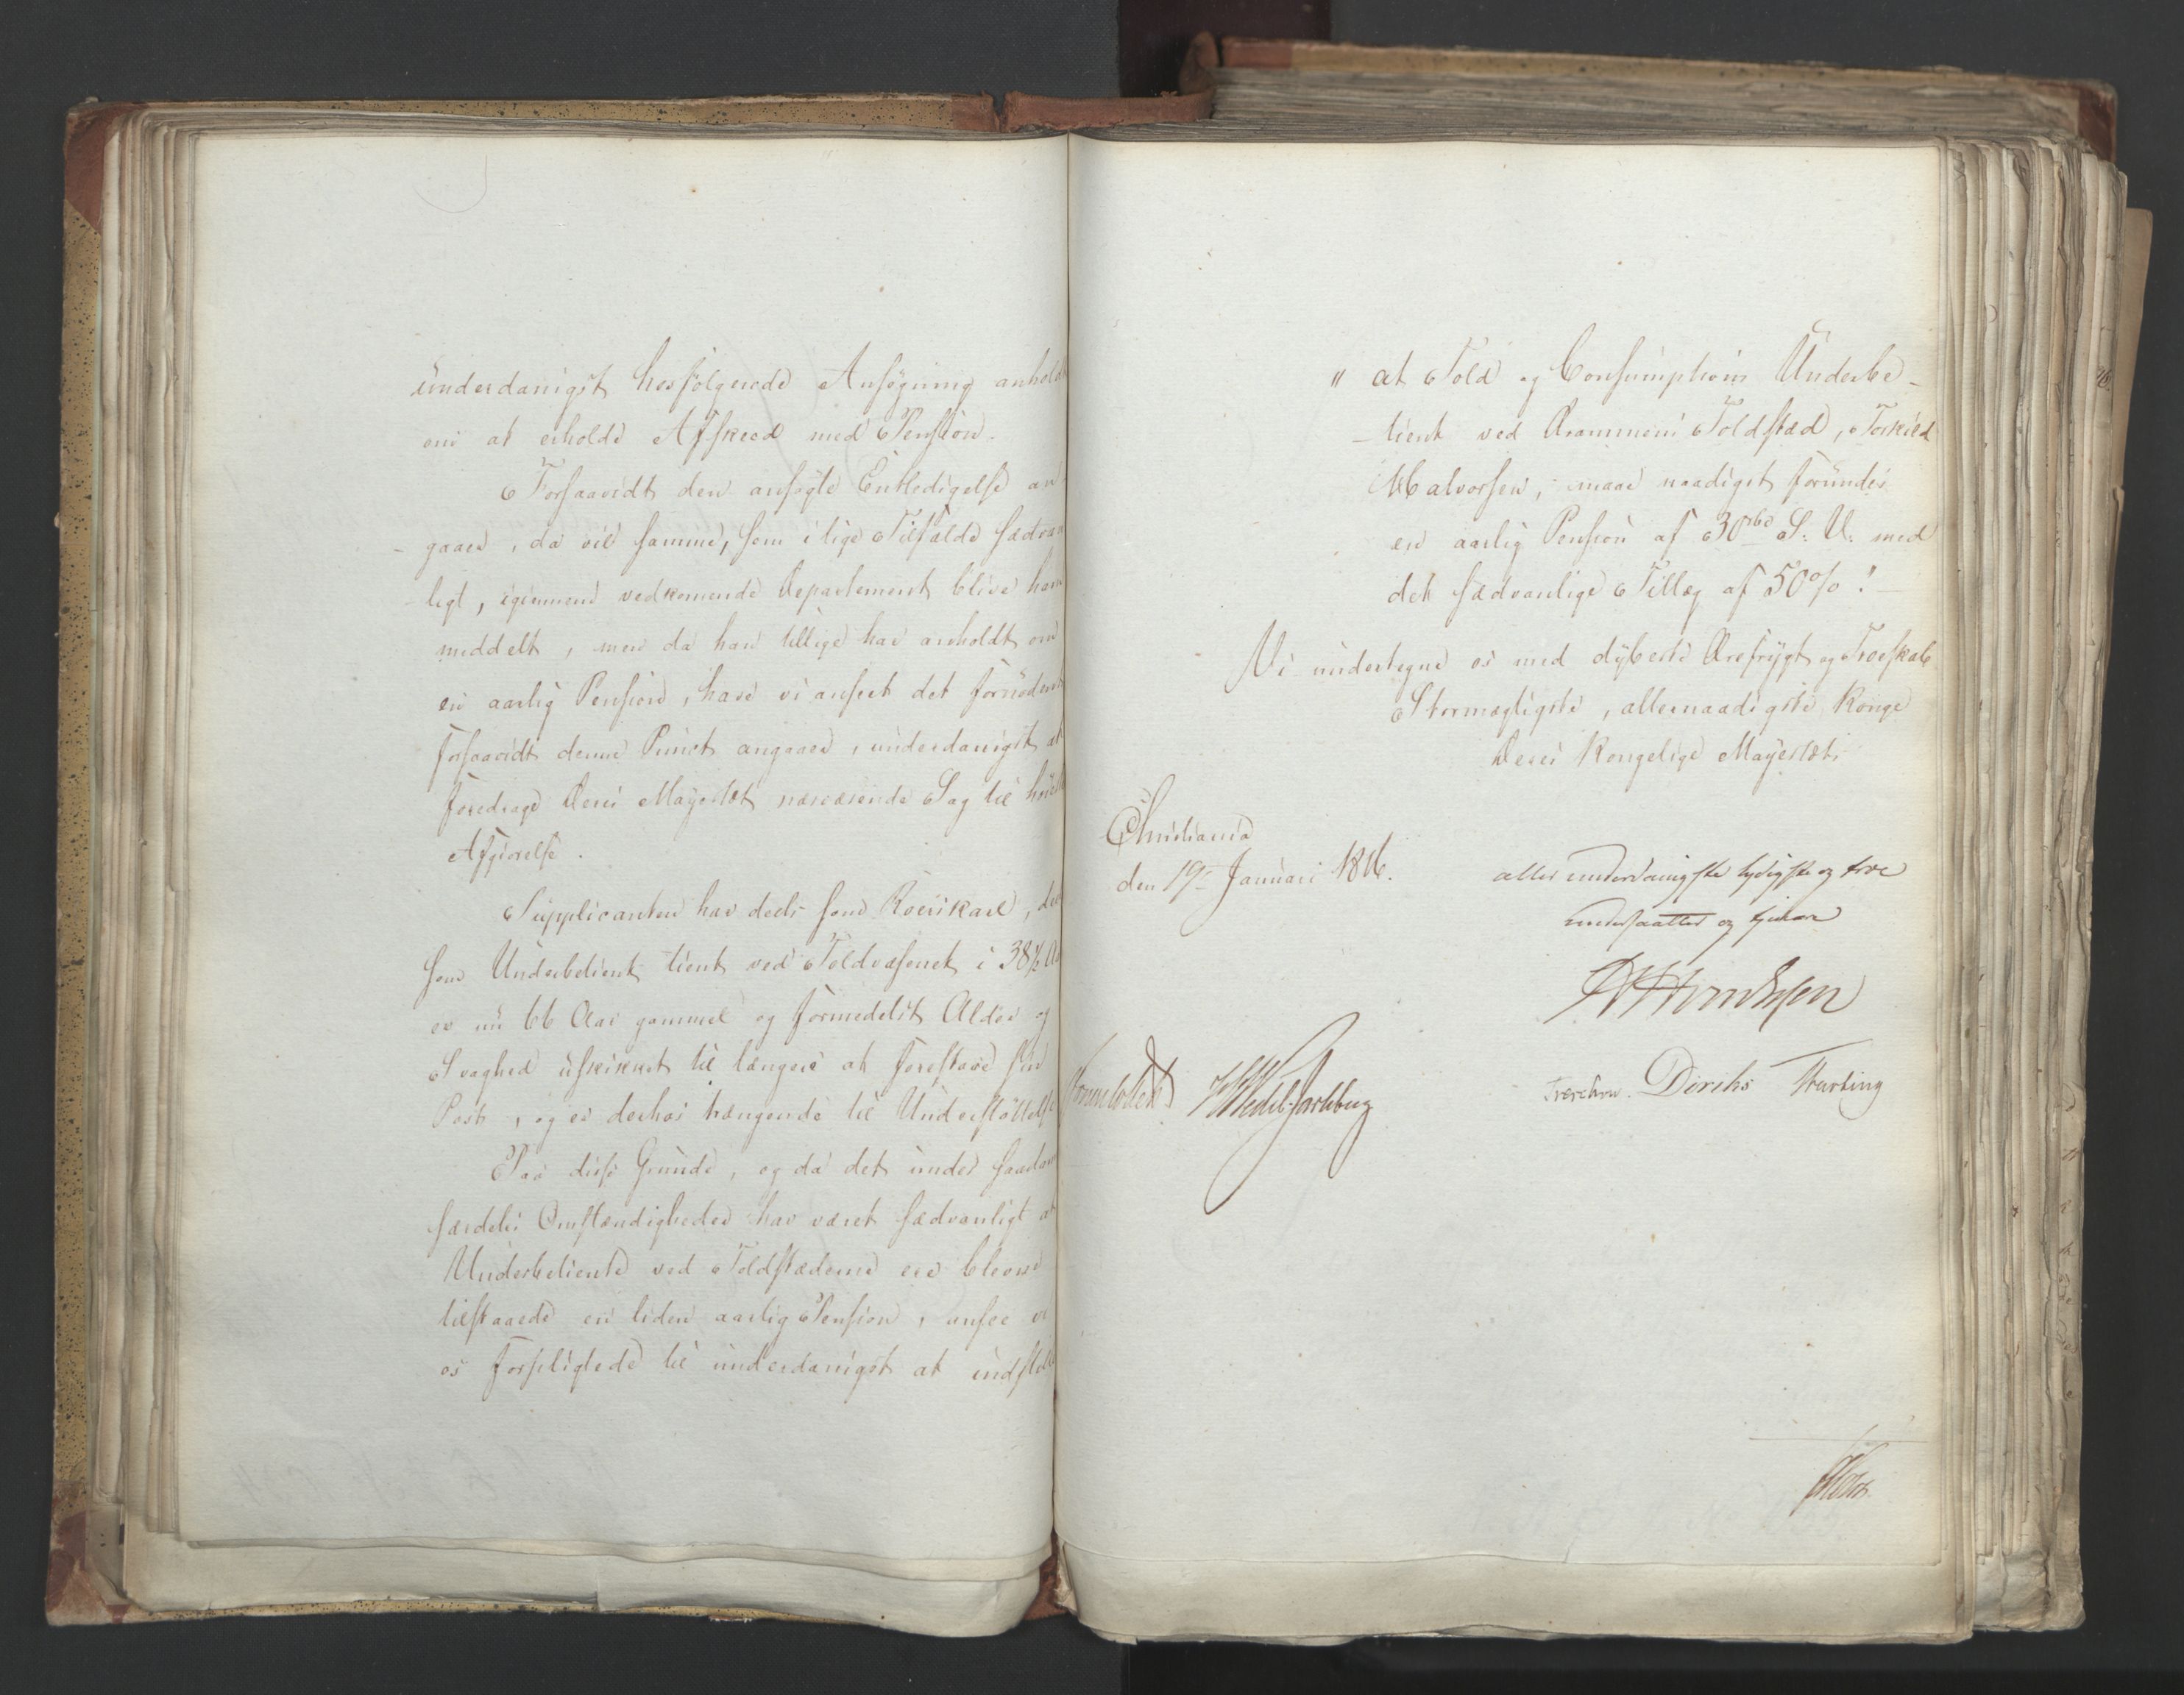 underdanigst hosfølgende Ansøgning anholdt
om at erholde Afskeed med Pension.
Forsaavidt den ansøgte Entledigelse an-
gaaer, da vil samme, som i lige Tilfælde sædvan-
ligt, igiennem vedkomende Departement blive ham
meddelt, men da han tillige har anholdt om
en aarlig Pension, have vi anseet det fornødent
forsaavidt denne Punct angaaer, underdanigst at
foredrage Deres Mayestæt nærværende Sag til høieste
Afgiørelse.
Supplicanten har deels som Roerskarl, deels
som Underbetient tient ved Toldvæsenet i 38½ Aar
er nu 66 Aar gammel og formedelst Alder og
Svaghed uskikket til længere at forestaae sin
Post, og er derhos trængende til Understøttelse
Paa disse Grunde, og da det under saadanne
særdeles Omstændigheder har været sædvanligt at
Underbetiente ved Toldstæderne ere blevne
tilstaaede en liden aarlig Pension, ansee vi
os forpligtede til underdanigst at indstille
" at Told og Consumptions Underbe-
-tient ved Drammens Toldsted, Torkild
Halvorsen, maae naadigst forundes
en aarlig Pension af 30 rbd S: V: med
det sædvanlige Tillæg af 50%! -
Vi undertegne os med dybeste Ærefrygt og Troeskab
Stormægtigste, allernaadigste Konge
Deres Kongelige Mayestæts
Christiania
den 19de Januari 1816.
allerunderdanigste lydigste og troe
undersaatter og tjenere
Sommerhielm HWedel-Jarlsberg
Treschow. Diriks Krefting